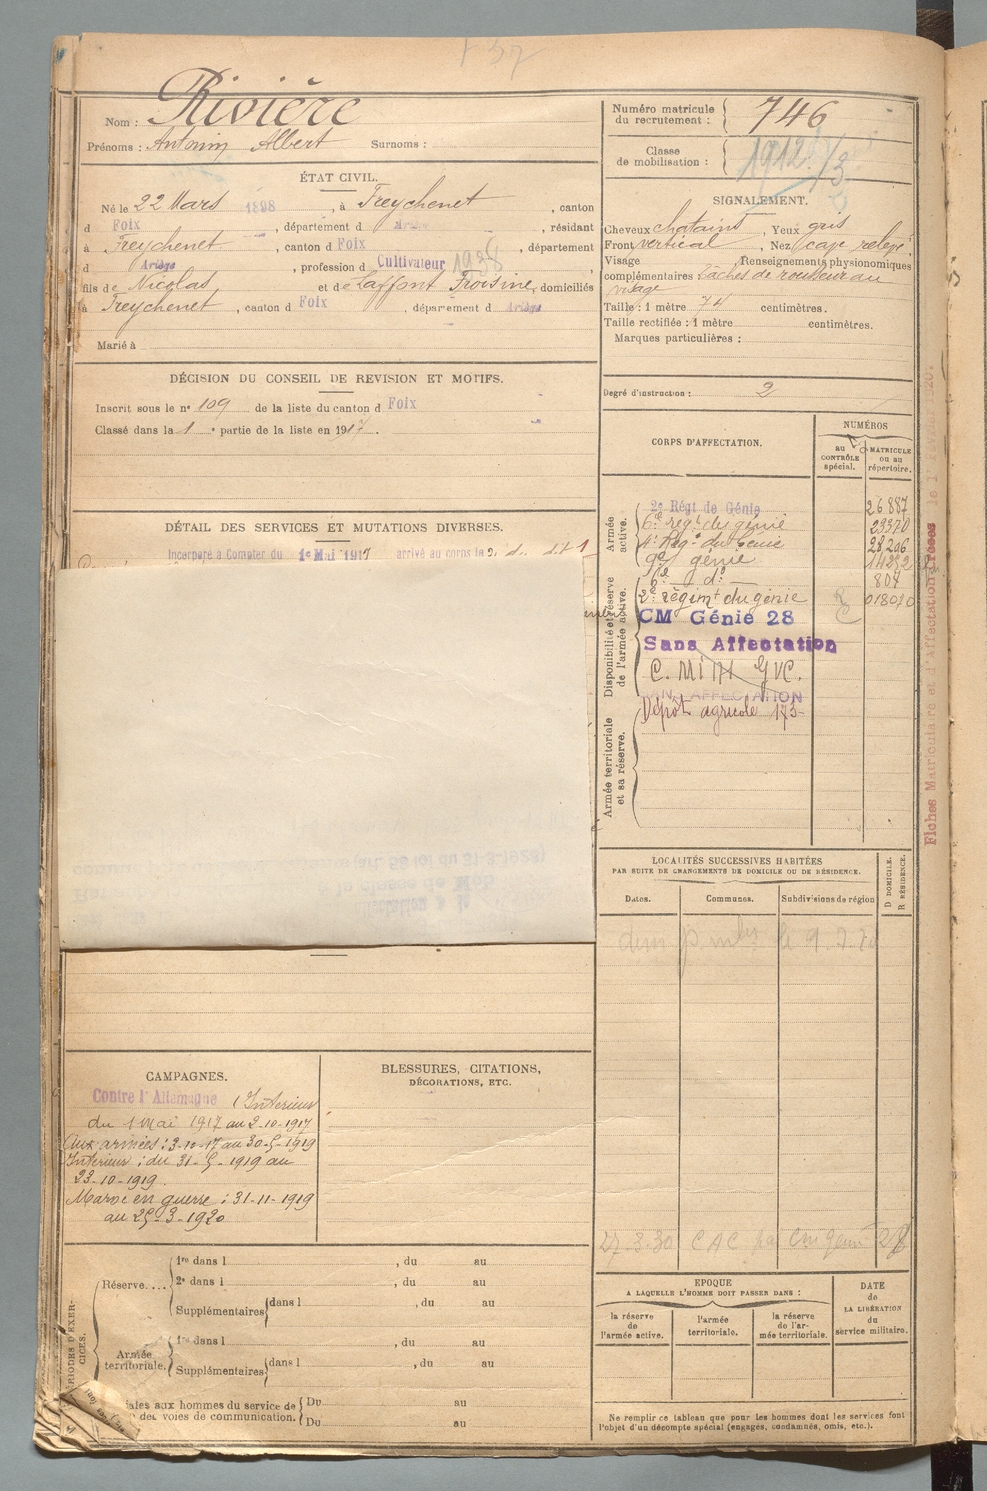 Nom : Rivière
Prénoms : Antonin Albert Surnoms :
ÉTAT CIVIL.
Né le 22 Mars 1898, à Freychenet, canton
d Foix, département d Ariège, résidant
à Freychenet, canton d Foix, département
d Ariège, profession de Cultivateur 1938
fils de Nicolas et de Laffont Froisine, domiciliés
à Freychenet, canton d Foix, département d Ariège
Marié à
DÉCISION DU CONSEIL DE REVISION ET MOTIFS.
Inscrit sous le nº 109 de la liste du canton d Foix
Classé dans la 1 e partie de la liste en 1917.
DÉTAIL DES SERVICES ET MUTATIONS DIVERSES.
Incorporé à Compter du 1er Mai 1917 arrivé au corps le
(art. 58 loi du 31-3-1928)
à la classe de Mob
CAMPAGNES.
Contre l'Allemagne (Intérieur
du 1 Mai 1917 au 2-10-1917
Aux armées : 3-10-17 au 30-5-1919
Intérieur : du 31-5-1919 au
23-10-1919.
Maroc en guerre : 31-11-1919
au 25-3-1920
BLESSURES, CITATIONS,
DÉCORATIONS, ETC.
Réserve....
1re dans l , du au
2e dans l , du au
Supplémentaires dans l , du au
Armée territoriale.
1re dans l , du au
Supplémentaires dans l , du au
iales aux hommes du service de
des voies de communication.
Du au
Du au
Numéro matricule
du recrutement : 746
Classe
de mobilisation : 1912
SIGNALEMENT.
Cheveux chatains, Yeux gris
Front vertical, Nez cave relevé
Visage Renseignements physionomiques
complémentaires tâches de rousseur au
visage
Taille : 1 mètre 74 centimètres.
Taille rectifiée : 1 mètre centimètres.
Marques particulières :
Degré d'instruction : 2
CORPS D'AFFECTATION.
NUMÉROS
au CONTRÔLE spécial.
MATRICULE ou au répertoire.
Armée active.
2e Régt de Génie 26887
6e régt du génie 23370
4e Régt du Génie 28206
9e génie 14252
6e dº 807
Disponibilité et réserve de l'armée active.
2e régimt du génie 018070
CM Génie 28
Sans Affectation
SANS AFFECTATION
Dépôt agricole 175
Armée territoriale et sa réserve.
LOCALITÉS SUCCESSIVES HABITÉES
PAR SUITE DE CHANGEMENTS DE DOMICILE OU DE RÉSIDENCE.
Dates. Communes. Subdivisions de région
D DOMICILE.
R RÉSIDENCE.
27.3.30 CAC
EPOQUE
A LAQUELLE L'HOMME DOIT PASSER DANS :
la réserve de l'armée active.
l'armée territoriale.
la réserve de l'armée territoriale.
DATE de LA LIBÉRATION du service militaire.
Ne remplir ce tableau que pour les hommes dont les services font
l'objet d'un décompte spécial (engagés, condamnés, omis, etc.).
Fiches Matriculaire et d'Affectation